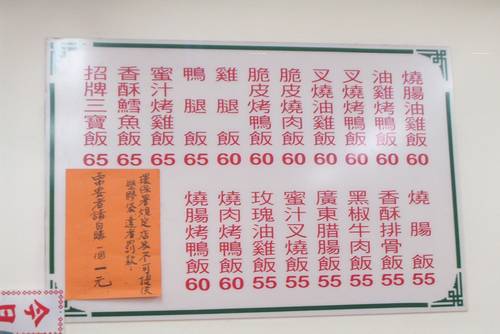 燒腸油雞飯 60
油雞烤鴨飯 60
叉燒烤鴨飯 60
叉燒油雞飯 60
脆皮燒肉飯 60
脆皮烤鴨飯 60
雞腿飯 60
鴨腿飯 65
蜜汁烤雞飯 65
香酥鱈魚飯 65
招牌三寶飯 65
燒腸飯 55
香酥排骨飯 55
黑椒牛肉飯 55
廣東腊腸飯 55
蜜汁叉燒飯 55
玫瑰油雞飯 55
燒肉烤鴨飯 60
燒腸烤鴨飯 60
環保署規定店家不可提供
塑膠袋違者罰款.
需要者請自購一個一元
今日